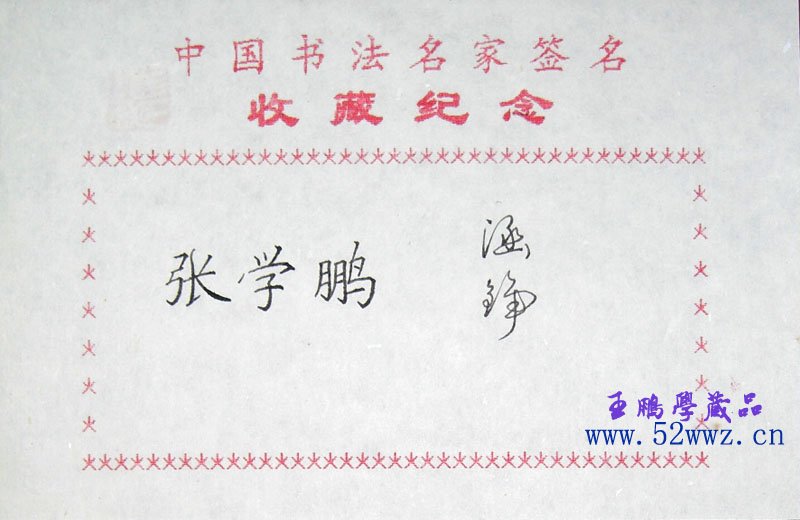 中国书法名家签名
收藏纪念
张学鹏
涵
铮
王鹏學藏品
www.52wwz.cn